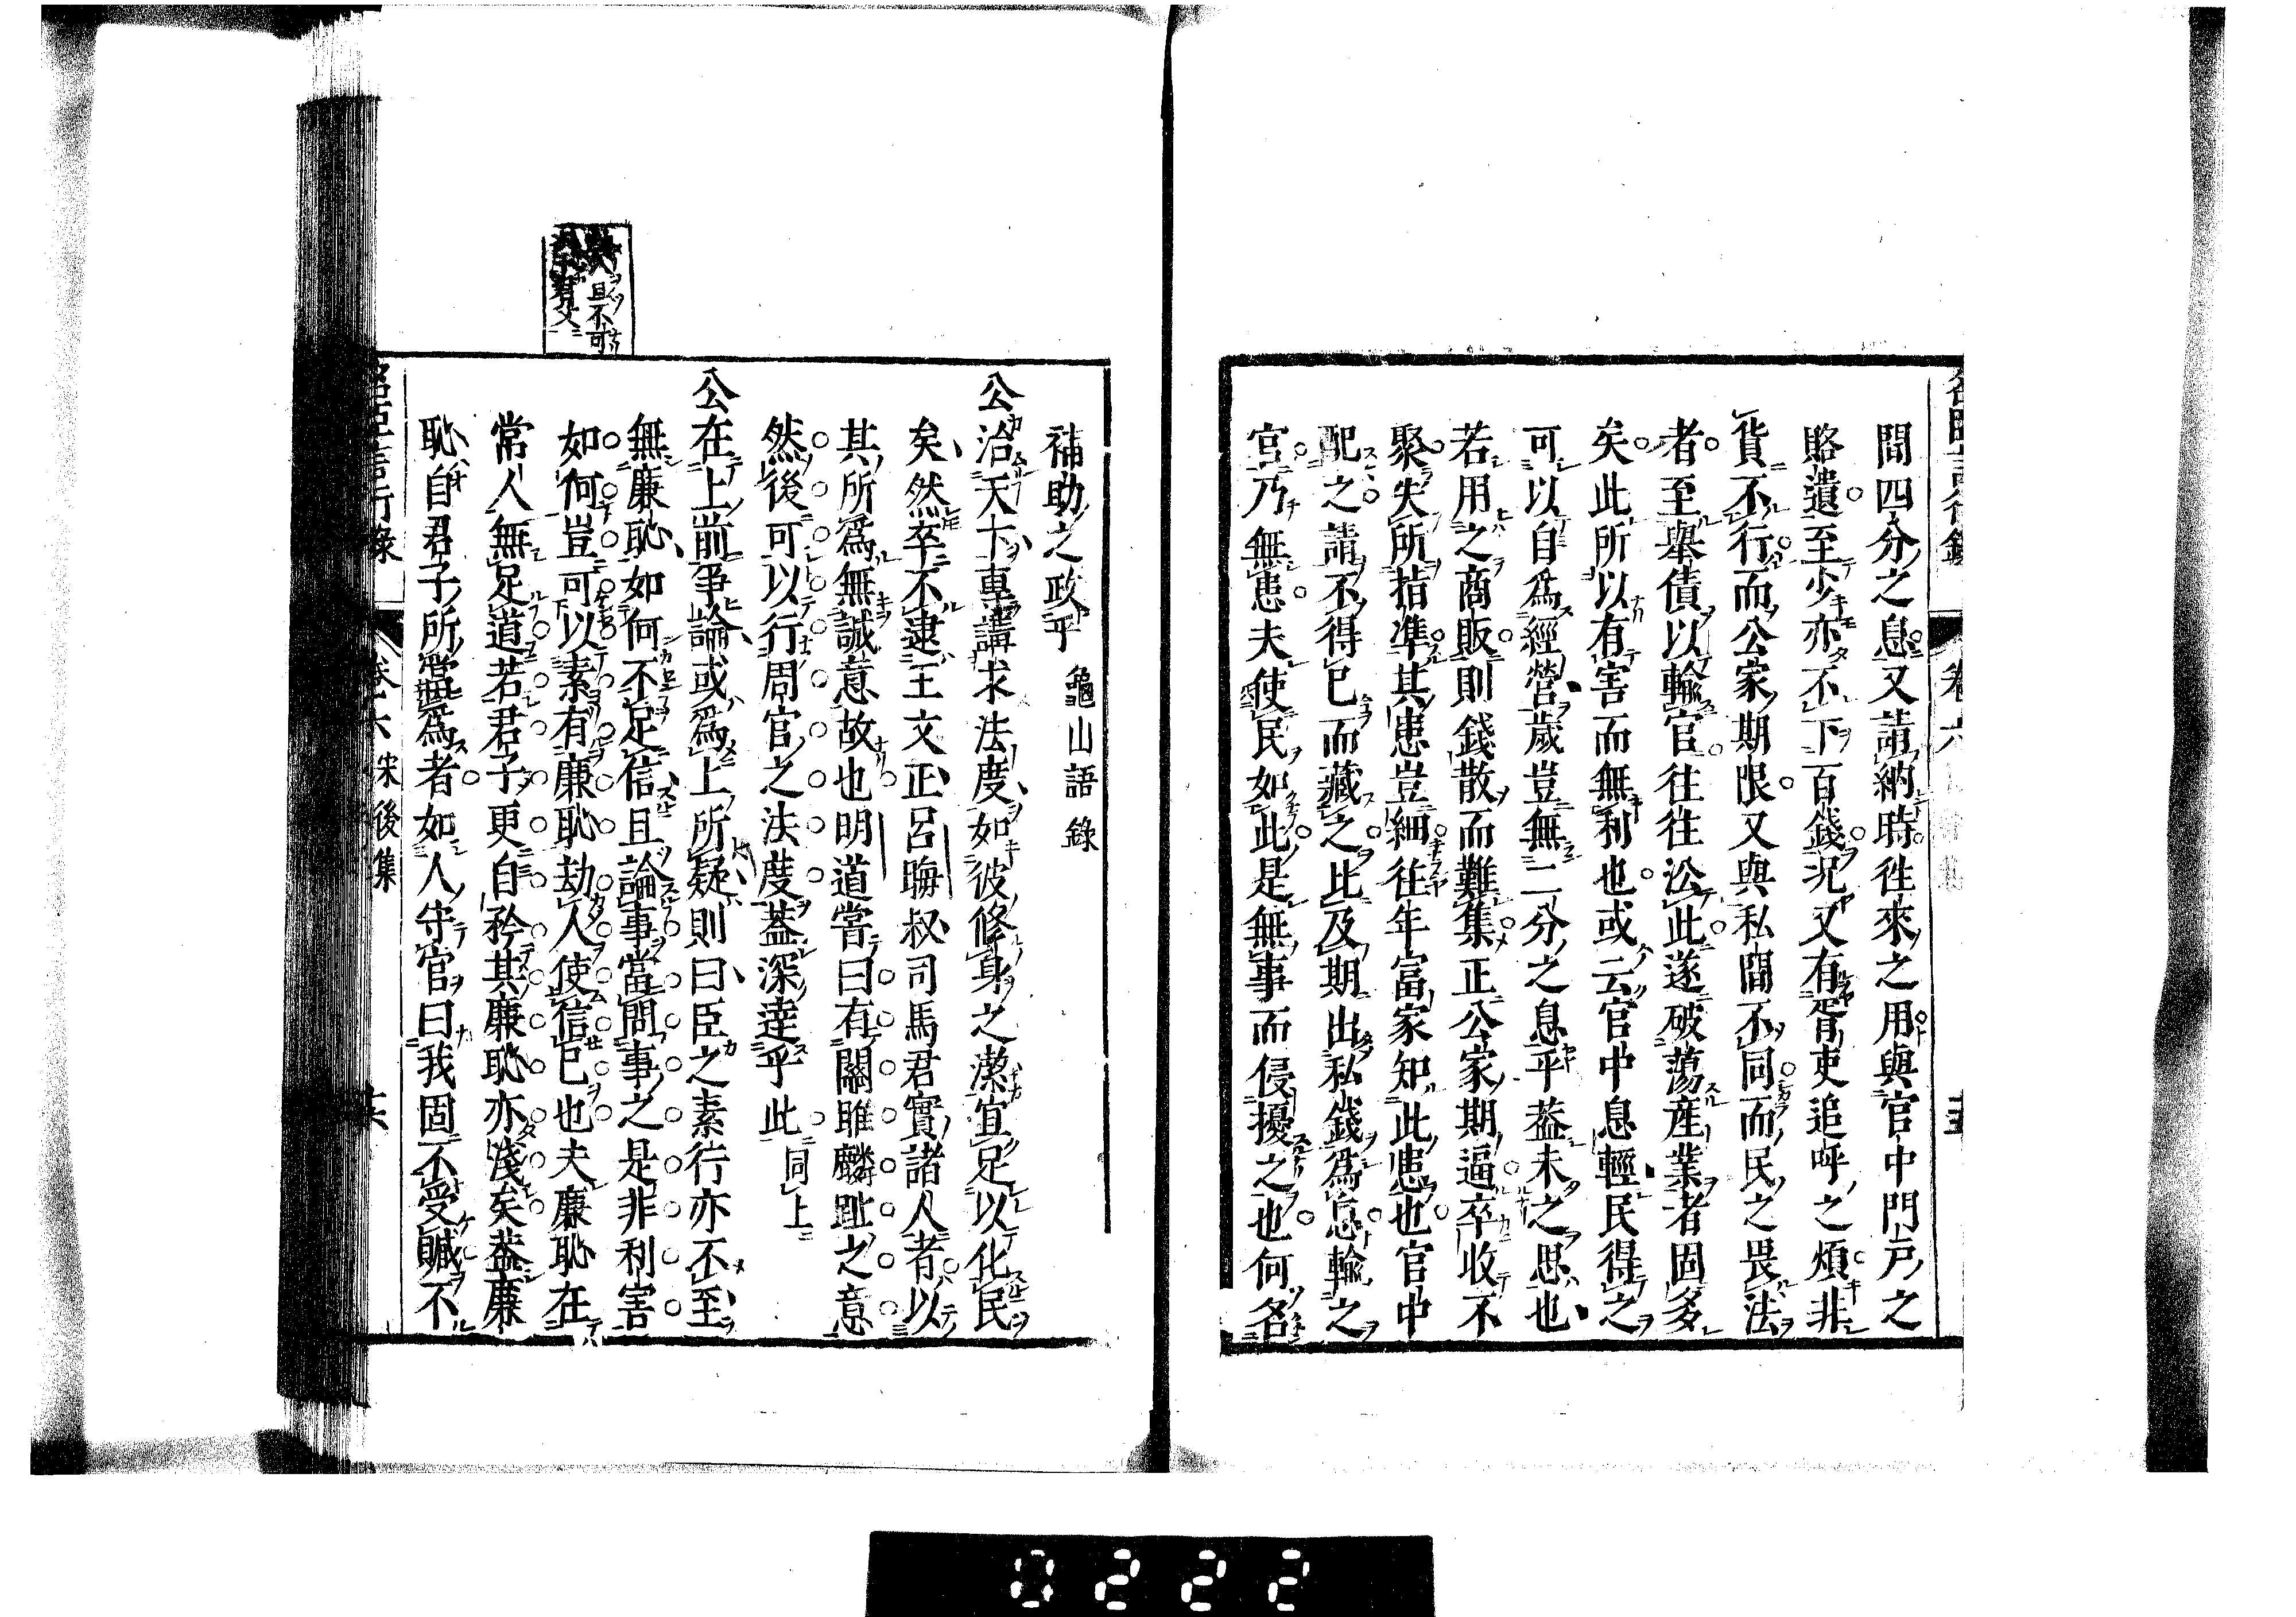 間四分之息又請納時徃來之用與官中門戸之
賂遺至少亦不下百錢況又有胥吏追呼之煩非
貨不行而公家期限又與私間不同而民之畏法
者至舉債以輸官徃徃㳂此遂破蕩産業者固多
矣此所以有害而無利也或云官中息輕民得之
可以自爲經營歲豈無二分之息乎蓋未之思也
若用之商販則錢散而難集正公家期逼卒收不
聚失所指準其患豈細徃年富家知此患也官中
配之請不得已而藏之比及期出私錢爲息輸之
官乃無患夫使民如此是無事而侵擾之也何名
補助之政乎 龜山語錄
公治天下專講求法度如彼修身之潔宜足以化民
矣然卒不逮王文正呂晦叔司馬君實諸人者以
其所爲無誠意故也明道嘗曰有關雎麟趾之意
然後可以行周官之法度蓋深達乎此 同上
公在上前爭論或爲上所疑則曰臣之素行亦不至
無廉恥如何不足信且論事當問事之是非利害
如何豈可以素有廉恥劫人使信已也夫廉恥在
常人無足道若君子更自矜其廉恥亦淺矣蓋廉
恥自君子所當爲者如人守官曰我固不受贓不
且不可
名臣言行錄 卷六 宋後集